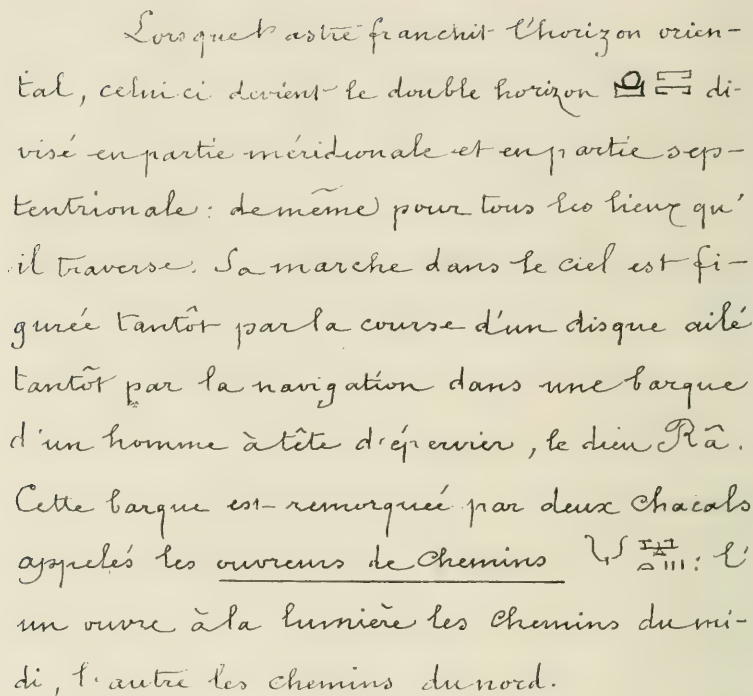 Lorsque l'astre franchit l'horizon orien-
tal, celui ci devient le double horizon di-
visé en partie méridionale et en partie sep-
tentrionale : de même pour tous les lieux qu'
il traverse. Sa marche dans le ciel est fi-
gurée tantôt par la course d'un disque ailé
tantôt par la navigation dans une barque
d'un homme à tête d'épervier, le dieu Râ.
Cette barque est remorqueé par deux chacals
appelés les ouvreurs de chemins : l'
un ouvre à la lumière les chemins du mi-
di, l'autre les chemins du nord.